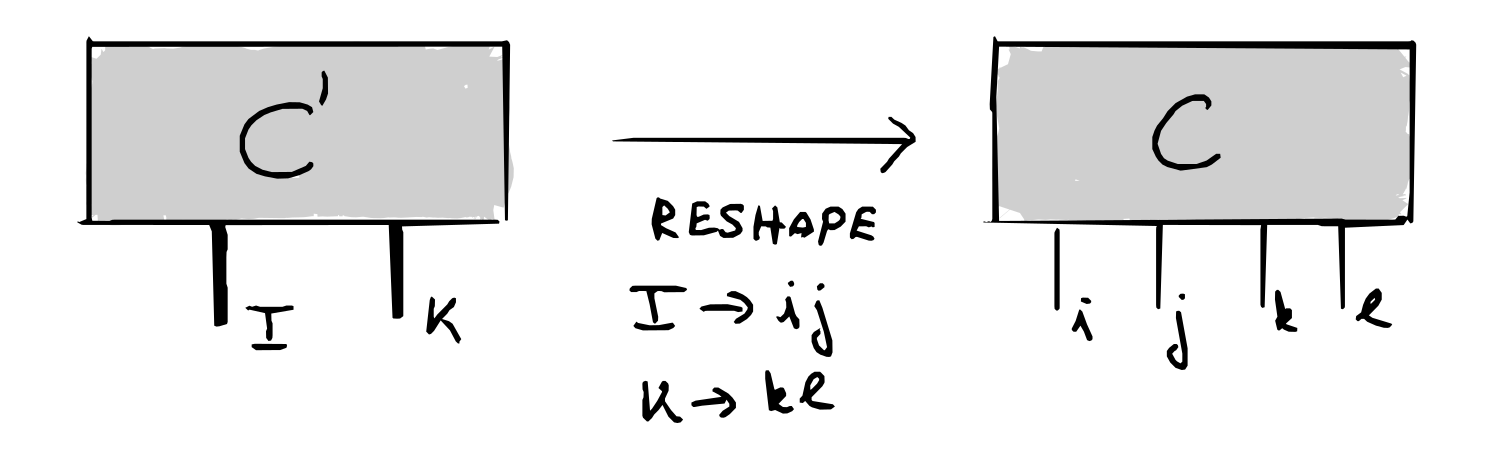 C'
I
K
RESHAPE
I → ij
K → kl
C
i
j
k
l